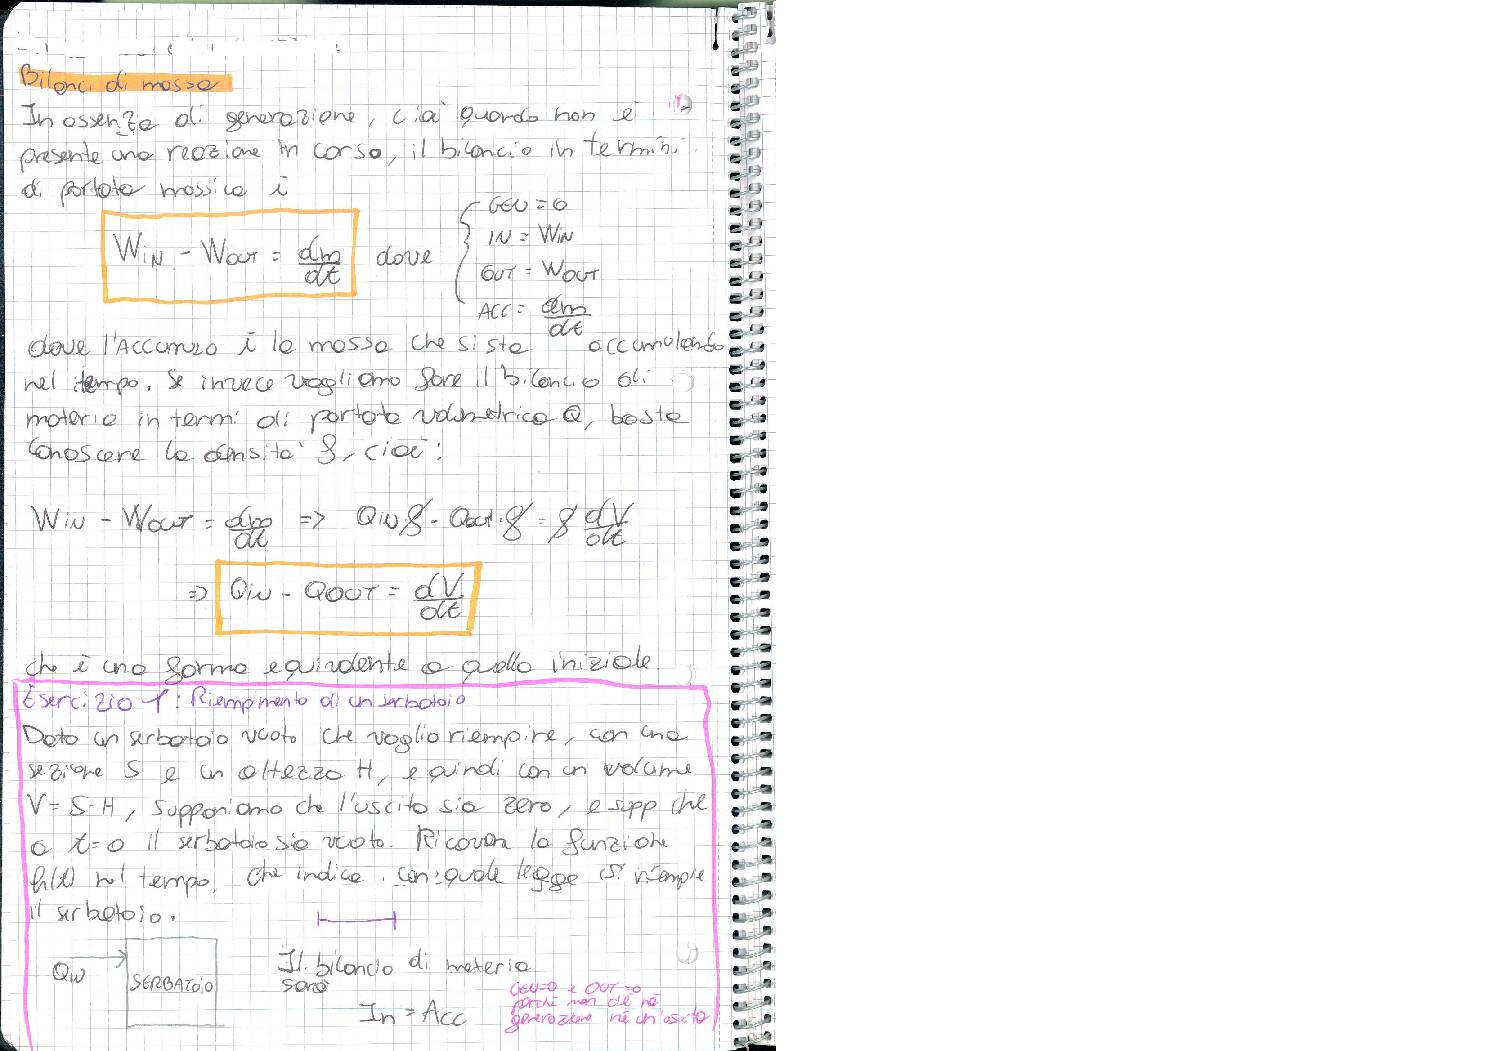 Bilanci di massa
In assenza di generazione, cioà quando non è
presente una reazione in corso, il bilancio in termini
di portata massica è
WIN - WOUT = dm/dt dove
GEN = 0
IN = WIN
OUT = WOUT
ACC = dm/dt
dove l'Accumulo è la massa che si sta accumulando
nel tempo. Se invece vogliamo fare il bilancio di
materia in termi di portata volumetrica Q, basta
conoscere la densità ρ, cioè:
WIN - WOUT = dm/dt => QIN ρ - QOUT · ρ = ρ dV/dt
=> QIN - QOUT = dV/dt
che è una forma equivalente a quella iniziale
Esercizio 1: Riempimento di un serbatoio
Dato un serbatoio vuoto che voglio riempire, con una
sezione S e un altezza H, e quindi con un volume
V = S·H, supponiamo che l'uscita sia zero, e supp che
a t=0 il serbatoio sia vuoto. Ricavare la funzione
h(t) nel tempo, che indica con quale legge si riempie
il serbatoio.
QIN
SERBATOIO
Il bilancio di materia
sarà
In = Acc
GEN=0 e OUT=0
perché non c'è nè
generazione nè un'uscita